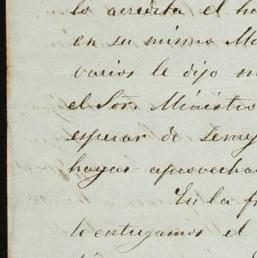 lo acredita el he
en su mismo Ma
varios le dijo
el Sor. Ministro
esperar de
hayas aprovecha
En la f
te entregamos el